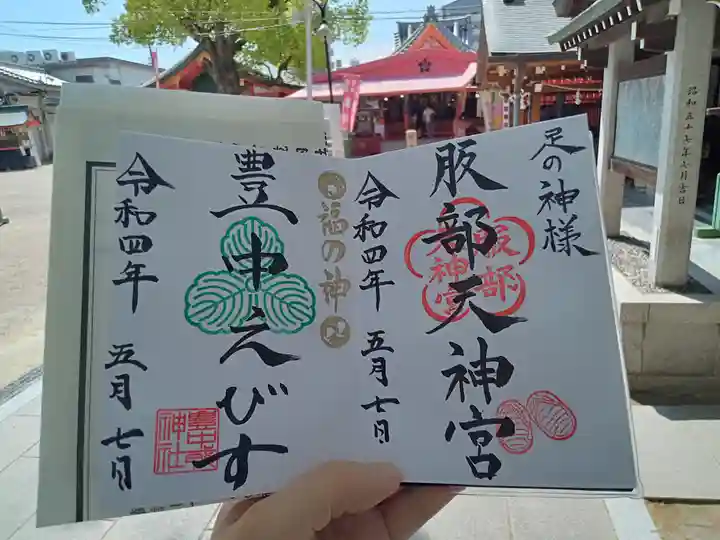 足の神様
服部天神宮
服部
天神宮
令和四年 五月七日
福の神
豊中えびす
豊中
神社
令和四年 五月七日
昭和五十七年七月吉日